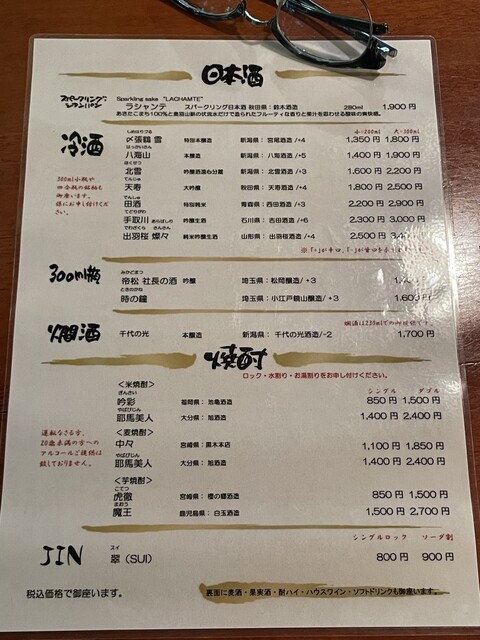 日本酒
スパークリングシャンパン
Sparkling sake "LACHAMTE"
ラシャンテ スパークリング日本酒 秋田県：鈴木酒造 280ml 1,900円
あきたこまち100％と奥羽山脈の伏流水だけで造られたフルーティな香りと果汁を思わせる酸味の爽快感。
冷酒
小・200ml 大・300ml
しめはりづる
〆張鶴 雪 特別本醸造 新潟県：宮尾酒造/+4 1,350円 1,800円
はっかいさん
八海山 本醸造 新潟県：八海酒造/+5 1,400円 1,900円
ほくせつ
北雪 吟醸酒造6分醸 新潟県：北雪酒造/+3 1,600円 2,200円
てんじゅ
天寿 大吟醸 秋田県：天寿酒造/+4 1,800円 2,500円
でんしゅ
田酒 特別純米 青森県：西田酒造/+3 2,200円 2,900円
てどりがわ あらばしり
手取川 吟醸生酒 石川県：吉田酒造/+6 2,300円 3,000円
でわざくら さんさん
出羽桜 燦々 純米吟醸生酒 山形県：出羽桜酒造/+4 2,500円
300ml小瓶や
四合瓶の銘柄も
御座います。
係にお申し付けください。
※「+」が辛口、「-」が甘口を
300ml瓶
みかどまつ
帝松 社長の酒 吟醸 埼玉県：松岡醸造/+3
ときのかね
時の鐘 埼玉県：小江戸鏡山醸造/+3 1,600円
燗酒
燗酒は230mlでの御提供です。
千代の光 本醸造 新潟県：千代の光酒造/-2 1,700円
焼酎
ロック・水割り・お湯割りをお申し付けください。
シングル ダブル
＜米焼酎＞
ぎんさい
吟彩 福岡県：池亀酒造 850円 1,500円
やばびじん
耶馬美人 大分県：旭酒造 1,400円 2,400円
＜麦焼酎＞
中々 宮崎県：黒木本店 1,100円 1,850円
やばびじん
耶馬美人 大分県：旭酒造 1,400円 2,400円
運転なさる方、
20歳未満の方への
アルコールご提供は
致しておりません。
＜芋焼酎＞
こてつ
虎徹 宮崎県：櫻の郷酒造 850円 1,500円
まおう
魔王 鹿児島県：白玉酒造 1,500円 2,700円
JIN
シングルロック ソーダ割
スイ
翠（SUI） 800円 900円
税込価格で御座います。
裏面に麦酒・果実酒・酎ハイ・ハウスワイン・ソフトドリンクも御座います。